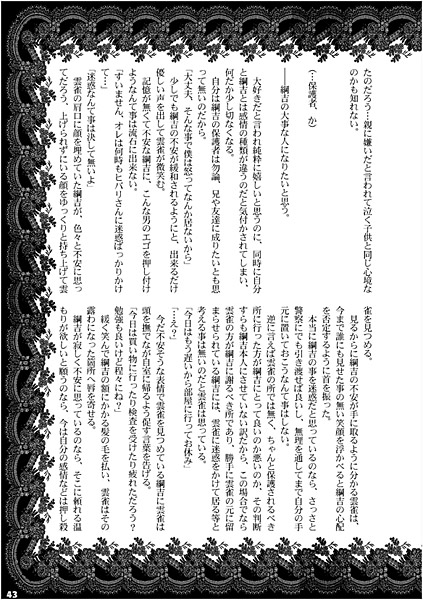 たのだろう…親に嫌いだと言われて泣く子供と同じ心境な
のかも知れない。
(…保護者、か)
――綱吉の大事な人になりたいと思う。
大好きだと言われ純粋に嬉しいと思うのに、同時に自分
と綱吉とは感情の種類が違うのだと気付かされてしまい、
何だか少し切なくなる。
自分は綱吉の保護者は勿論、兄や友達に成りたいとも思
って無いのだから。
「大丈夫、そんな事で僕は怒ってなんか居ないから」
少しでも綱吉の不安が緩和されるようにと、出来るだけ
優しい声を出して雲雀が微笑む。
記憶が無くて不安な綱吉に、こんな男のエゴを押し付け
ようなんて事は流石に出来ない。
「すいません、オレは何時もヒバリさんに迷惑ばっかりかけ
て…」
「迷惑なんて事は決して無いよ」
雲雀の肩口に顔を埋めていた綱吉が、色々と不安に思っ
てだろう、上げられずにいる顔をゆっくりと持ち上げて雲
雀を見つめる。
見るからに綱吉の不安が手に取るように分かる雲雀は、
今まで誰にも見せた事の無い笑顔を浮かべると綱吉の心配
を否定するように首を振った。
本当に綱吉の事を迷惑だと思っているのなら、さっさと
警察にでも引き渡せば良いし、無理を通してまで自分の手
元に置いておこうなんて事はしない。
逆に言えば雲雀の所では無く、ちゃんと保護されるべき
所に行った方が綱吉にとって良いのか悪いのか、その判断
すらも綱吉本人にさせていない訳だから、この場合でなら
雲雀の方が綱吉に謝るべき所であり、勝手に雲雀の元に留
まらせられている綱吉には、雲雀に迷惑をかけて居る等と
考える事は無いのだと雲雀は思っている。
「今日はもう遅いから部屋に行ってお休み」
「…えっ？」
今だ不安そうな表情で雲雀を見つめている綱吉に雲雀は
頭を撫でなが自室に帰るよう促す言葉を告げる。
「今日は買い物に行ったり検査を受けたり疲れただろう？
勉強も良いけど程々にね？」
緩く笑んで綱吉の額にかかる髪の毛を払い、雲雀はその
露わになった箇所へ唇を寄せる。
綱吉が寂しく不安に思っているのなら、そこに頼れる温
もりが欲しいと願うのなら、今は自分の感情などは押し殺
43